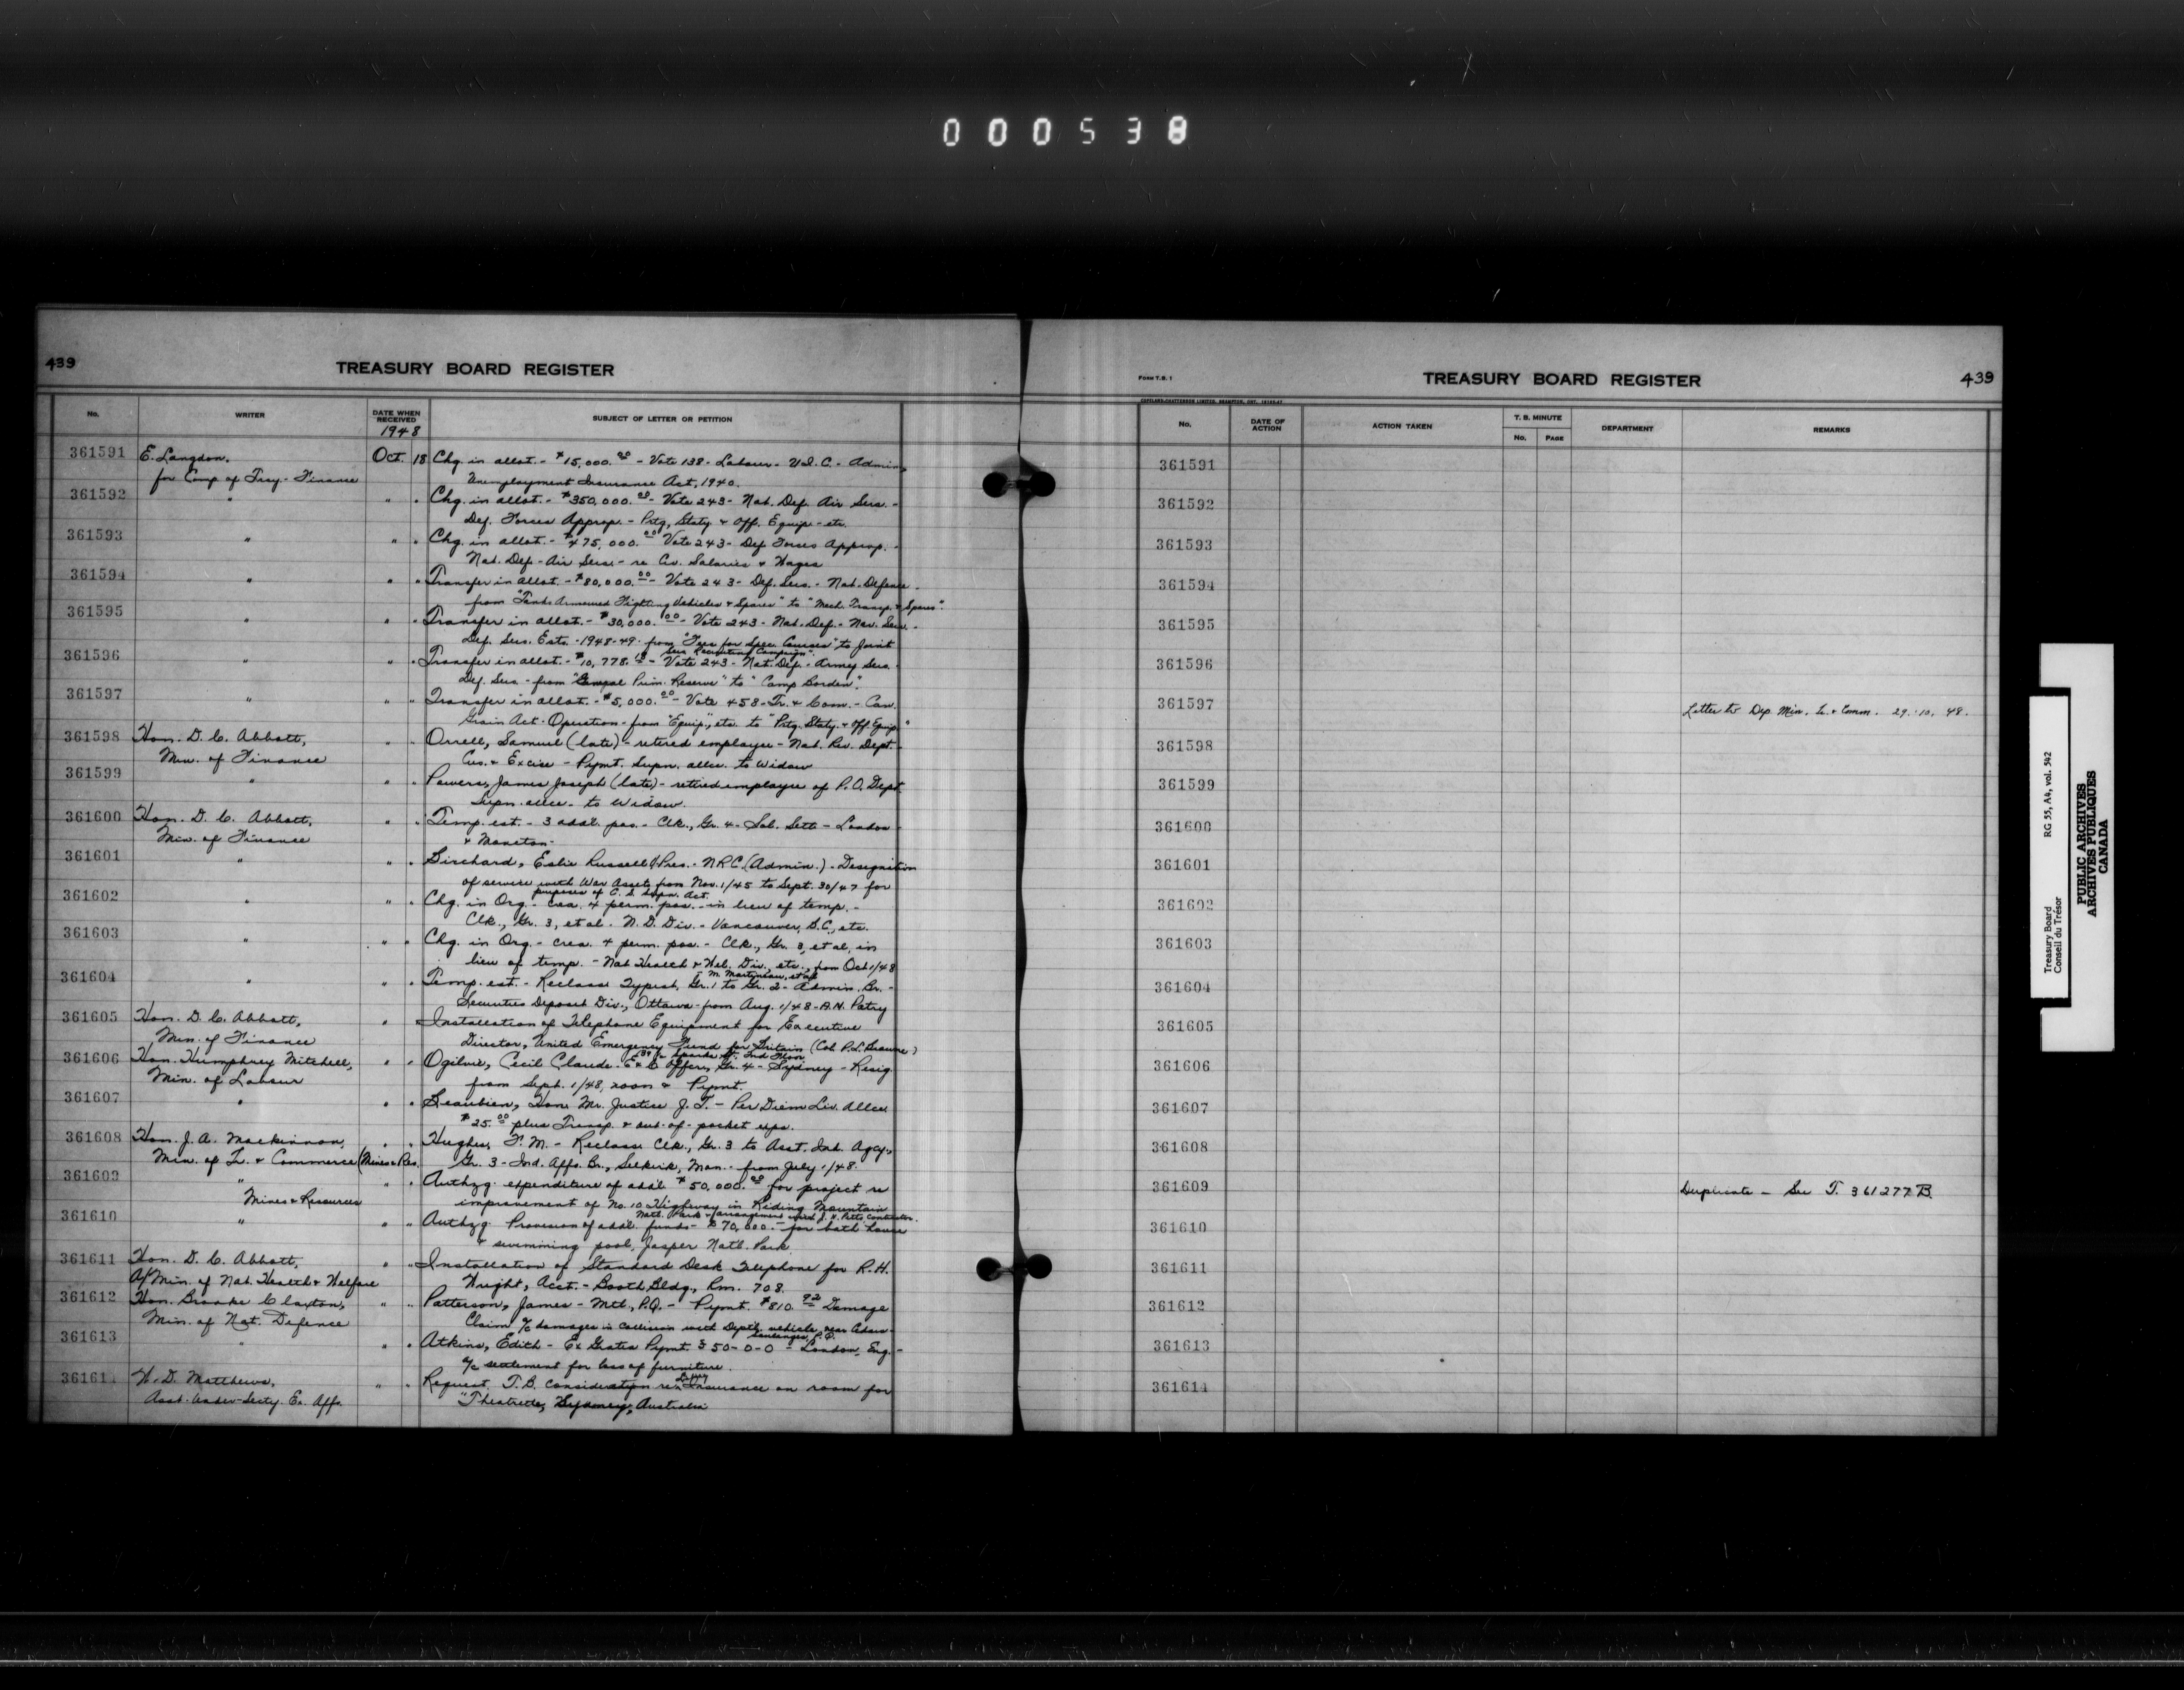 000538
439
TREASURY BOARD REGISTER
No.
WRITER
DATE WHEN RECEIVED
1948
SUBJECT OF LETTER OR PETITION
361591 E. Langdon, Oct. 18 Chg. in allot. - $15,000.00 - Vote 138 - Labour - U.I.C. - Admin.
for Comp of Trsy - Finance Unemployment Insurance Act, 1940.
361592 " " " Chg. in allot. - $350,000.00 - Vote 243 - Nat. Def. Air Serv. -
Def. Forces Approp. - Prtg, Staty & Off. Equip - etc.
361593 " " " Chg. in allot. - $475,000.00 Vote 243 - Def Forces Approp. -
Nat. Def - Air Serv. - re Civ. Salaries & Wages
361594 " " " Transfer in allot. - $80,000.00 - Vote 243 - Def. Serv. - Nat. Defence.
from "Tank Armoured Fighting Vehicles & Spares" to "Mech. Transp. & Spares".
361595 " " " Transfer in allot. - $30,000.00 - Vote 243 - Nat. Def. - Nav. Serv. -
Def. Serv. Ests. - 1948-49 - from "Fees for Spec. Courses" to Joint
Serv. Recruiting Campaign".
361596 " " " Transfer in allot. - $10,778. - Vote 243 - Nat. Def. - Army Serv.
Def. Serv - from "General Prim. Reserve" to "Camp Borden".
361597 " " " Transfer in allot. - $5,000.00 - Vote 458 - Tr. & Com. - Can.
Grain Act - Operation - from "Equip", etc. to "Prtg. Staty. & Off Equip"
361598 Hon. D. C. Abbott, " " Orrell, Samuel (late) - retired employee - Nat. Rev. Dept. -
Min. of Finance Cus. & Excise - Pymt. Supn. allce. to Widow
361599 " " " Powers, James Joseph (late) - retired employee of P.O. Dept.
Supn. allce. to Widow.
361600 Hon. D. C. Abbott, " " Temp. est. - 3 addl. pos. - Clk., Gr. 4 - Sol. Settt - London
Min. of Finance & Moncton -
361601 " " " Birchard, Eslie Russell V/Pres. - NRC (Admin.) - Designation
of service with War Assets from Nov. 1/45 to Sept. 30/47 for
purposes of C. S. Supn. Act.
361602 " " " Chg. in Org. - crea. 4 perm. pos. - in lieu of temp. -
Clk., Gr. 3, et al. N. D. Div. - Vancouver, B.C., etc.
361603 " " " Chg. in Org. - crea. 4 perm. pos. - Clk., Gr. 3, et al, in
lieu of temp. - Nat Health & Wel. Div., etc., from Oct 1/48
M. Martineau, et al
361604 " " " Temp. est. - Reclassn Typist, Gr. 1 to Gr. 2 - Admin. Br. -
Securities Deposit Div., Ottawa - from Aug. 1/48 - A.N. Patry
361605 Hon. D. C. Abbott, " Installation of Telephone Equipment for Executive
Min. of Finance Director, United Emergency Fund for Britain (Col. P.L. Browne)
Sparks St. 2nd Floor
361606 Hon. Humphrey Mitchell, " " Ogilvie, Cecil Claude - E & C Officer, Gr. 4 - Sydney - Resig.
Min. of Labour from Sept. 1/48, noon & Pymt.
361607 " " " Beaubien, Hon. Mr. Justice J. T. - Per Diem Liv. Allce
$25.00 plus Transp. & out-of-pocket exps.
361608 Hon. J. A. MacKinnon, " " Hughes, F. M. - Reclassn Clk., Gr. 3 to Asst. Ind. Agcy.,
Min. of Tr. & Commerce (Mines & Res. Gr. 3 - Ind. Affs. Br., Selkirk, Man. - from July 1/48.
361609 " " " Authzg. expenditure of addl. $50,000.00 for project re
Mines & Resources improvement of No. 10 Highway in Riding Mountain
Natl. Park & arrangement with J. H. Pitts Contractor.
361610 " " " Authzg. Provision of addl. funds - $70,000.- for bath house
& swimming pool, Jasper Natl. Park.
361611 Hon. D. C. Abbott, " " Installation of Standard Desk Telephone for R. H.
A/Min. of Nat. Health & Welfare Wright, Acct. - Booth Bldg., Rm. 708.
361612 Hon. Brooke Claxton, " " Patterson, James - Mtl., P.Q. - Pymt. $810.92 Damage
Min. of Nat. Defence Claim a/c damages in collision with Deptl. vehicle near
361613 " " " Atkins, Edith - Ex Gratia Pymt. £50-0-0 - London, Eng. -
a/c settlement for loss of furniture.
361614 W. D. Matthews, " " Request T.B. consideration re Insurance on room for
Asst. Under-Secty. Ex. Affs. "Theatrette, Sydney, Australia
Form T.B. 1
COPELAND-CHATTERSON LIMITED, BRAMPTON, ONT.
TREASURY BOARD REGISTER
439
No.
DATE OF ACTION
ACTION TAKEN
T. B. MINUTE
No.
PAGE
DEPARTMENT
REMARKS
361591
361592
361593
361594
361595
361596
361597 Letter to Dep. Min. Tr. & Comm. 29.10.48.
361598
361599
361600
361601
361602
361603
361604
361605
361606
361607
361608
361609 Duplicate - See T. 361277 B.
361610
361611
361612
361613
361614
Treasury Board RG 55, A4, vol. 542
Conseil du Trésor
PUBLIC ARCHIVES
ARCHIVES PUBLIQUES
CANADA